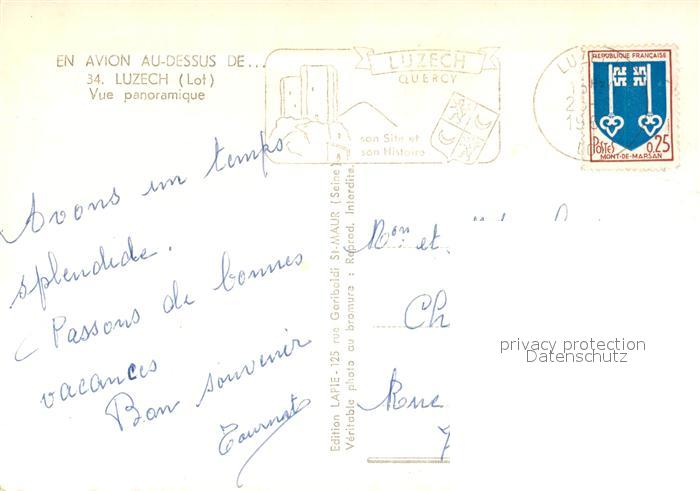 EN AVION AU-DESSUS DE...
34. LUZECH (Lot)
Vue panoramique
LUZECH
QUERCY
son Site et
son Histoire
REPUBLIQUE FRANÇAISE
POSTES 0,25
MONT-DE-MARSAN
Avons un temps
splendide.
Passons de bonnes
vacances
Bon souvenir
Tournat
Edition LAPIE-125 rue Garibaldi ST-MAUR (Seine)
Véritable photo au bromure : Reprod. Interdite.
et
Ch
privacy protection
Datenschutz
Rue